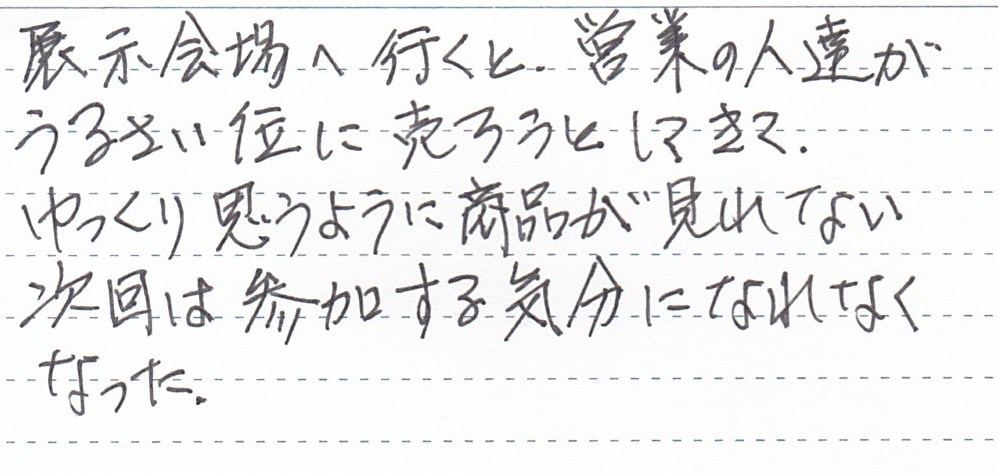 展示会場へ行くと、営業の人達が
うるさい位に売ろうとしてきて、
ゆっくり思うように商品が見れてない
次回は参加する気分になれなく
なった。